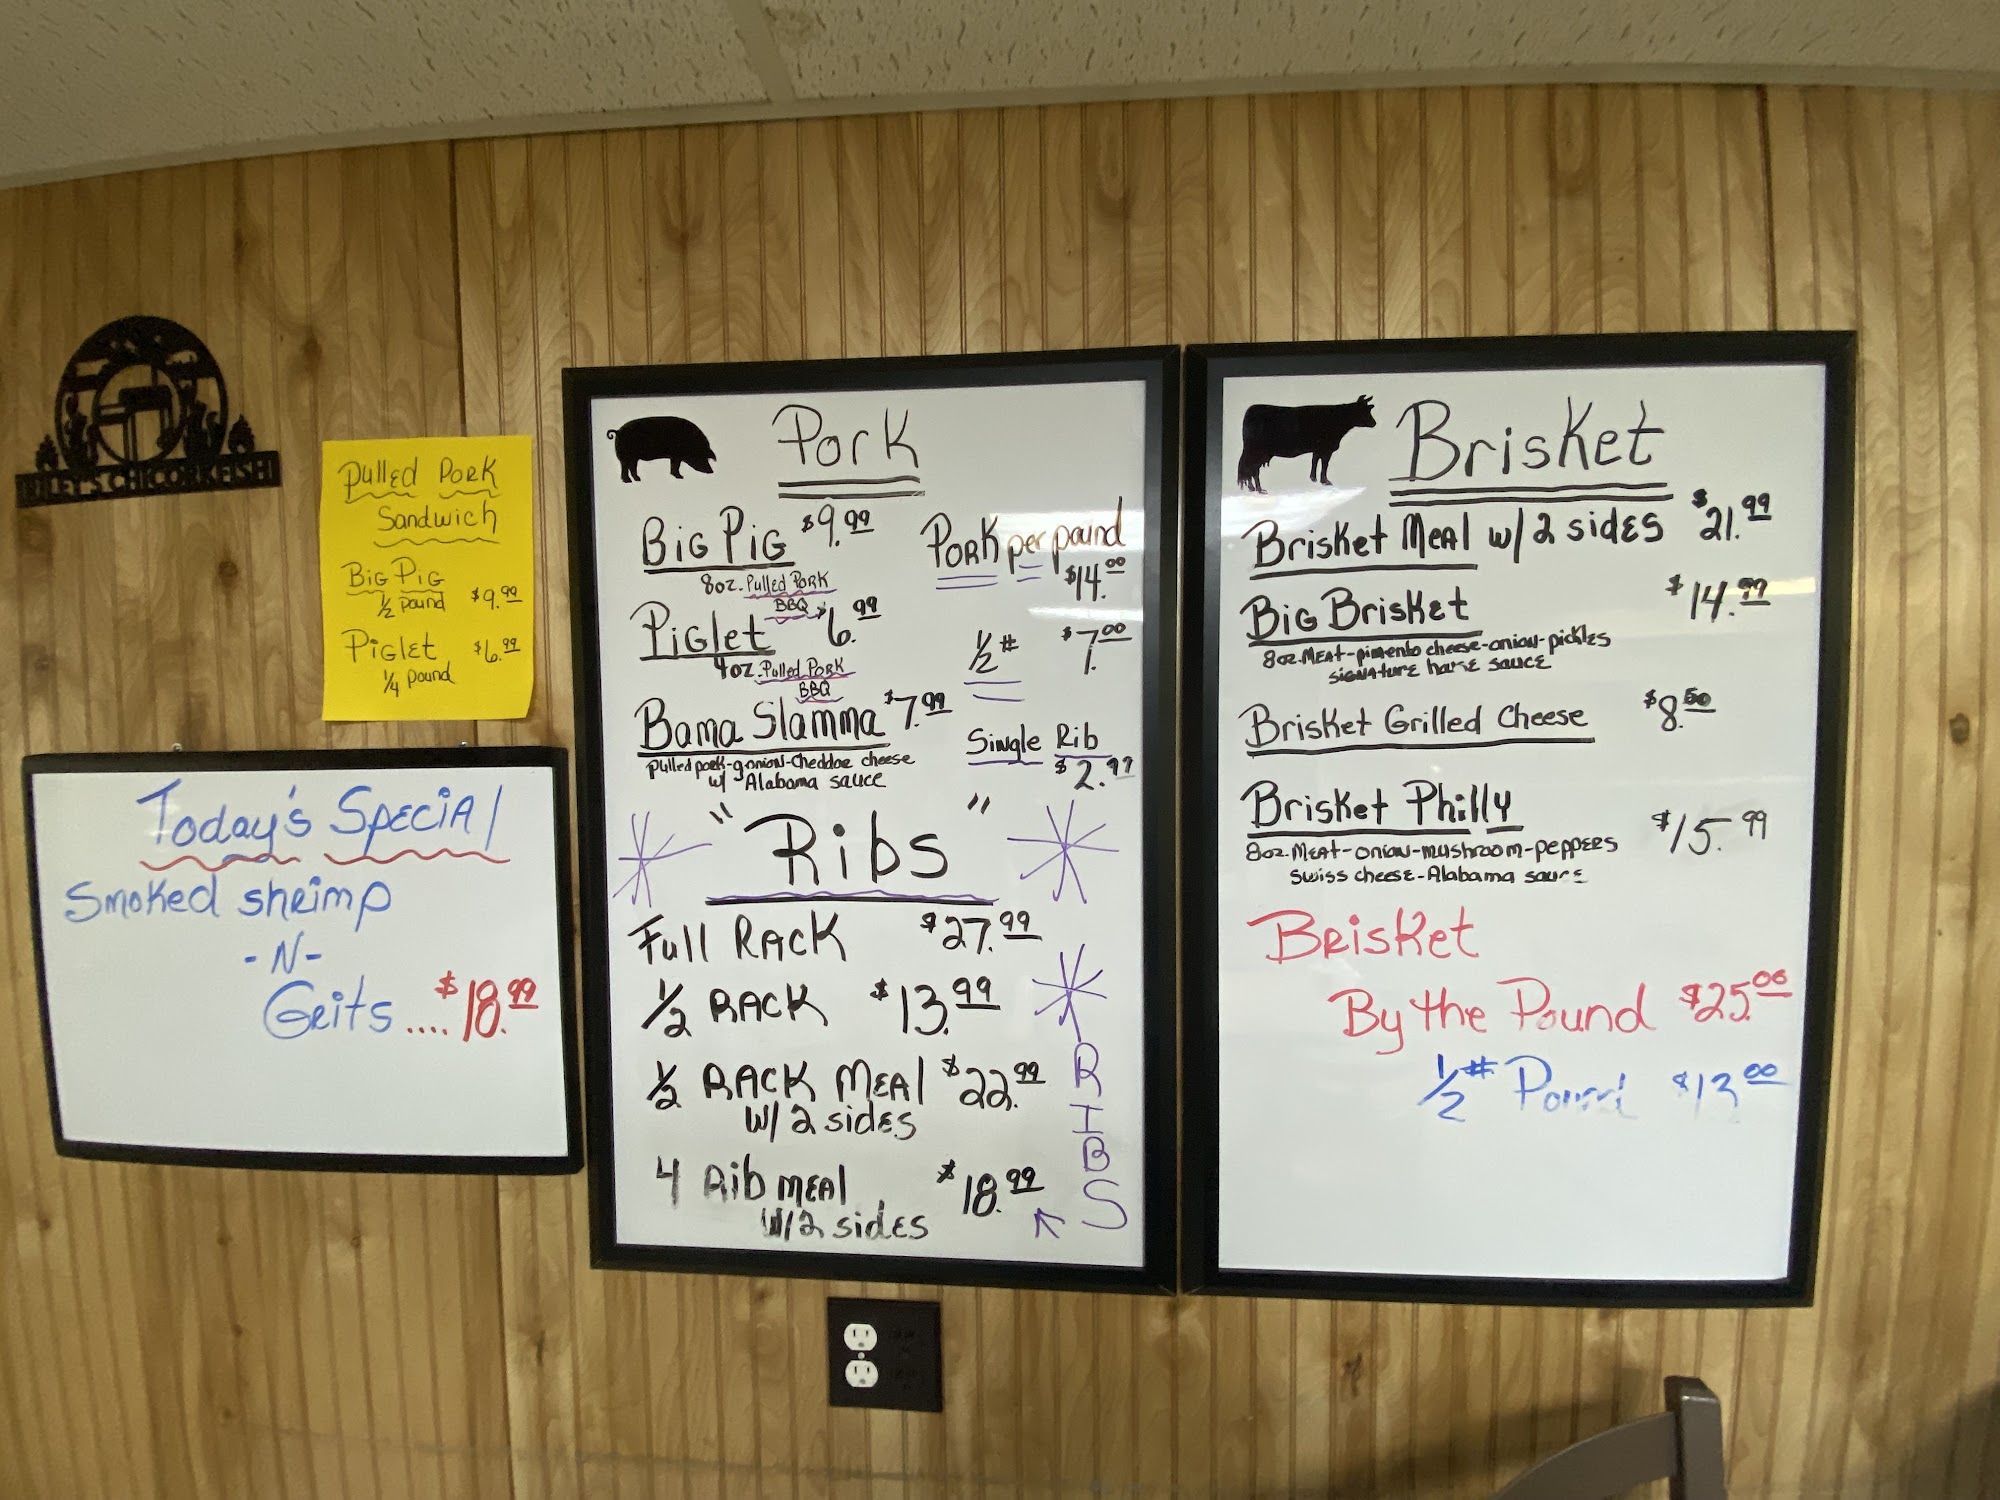 Pulled Pork
Sandwich
Big Pig
1/2 Pound $9.99
Piglet $6.99
1/4 Pound
Today's Special
Smoked shrimp
-N-
Grits .... $18.99
Pork
Big Pig $9.99
8oz. Pulled Pork
BBQ
Piglet $6.99
4oz. Pulled Pork
BBQ
Bama Slamma $7.99
Pulled pork-g.onion-Cheddar cheese
w/ Alabama sauce
Pork per pound
$14.00
1/2 # $7.00
Single Rib
$2.99
"Ribs"
Full Rack $27.99
1/2 Rack $13.99
1/2 Rack Meal $22.99
w/ 2 sides
4 Rib meal $18.99
w/2 sides
RIBS
Brisket
Brisket Meal w/ 2 sides $21.99
Big Brisket $14.99
8oz. Meat-pimento cheese-onion-pickles
signature sauce
Brisket Grilled Cheese $8.50
Brisket Philly $15.99
8oz. Meat-onion-mushroom-peppers
swiss cheese-Alabama sauce
Brisket
By the Pound $25.00
1/2 # Pound $13.00